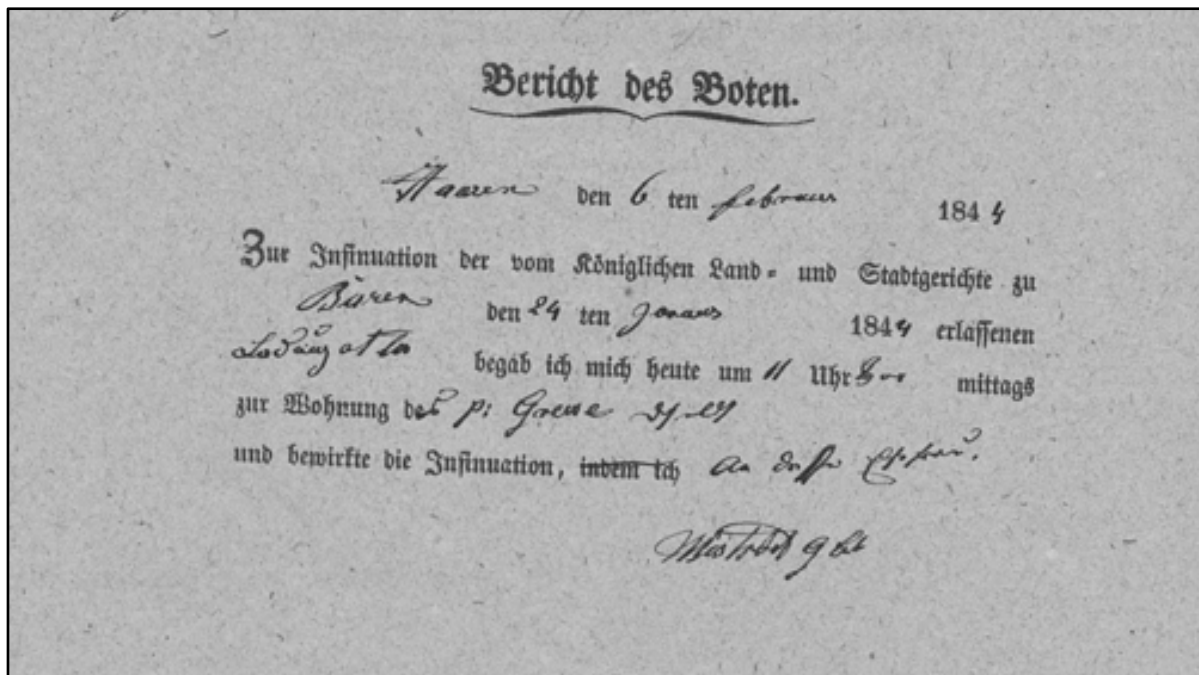 Bericht des Boten.
Haaren den 6 ten Februar 1844
Zur Insinuation der vom Königlichen Land- und Stadtgerichte zu
Büren den 24 ten Januar 1844 erlassenen
begab ich mich heute um 11 Uhr mittags
zur Wohnung des p: Grewe
und bewirkte die Insinuation, indem ich an dessen Ehefrau.